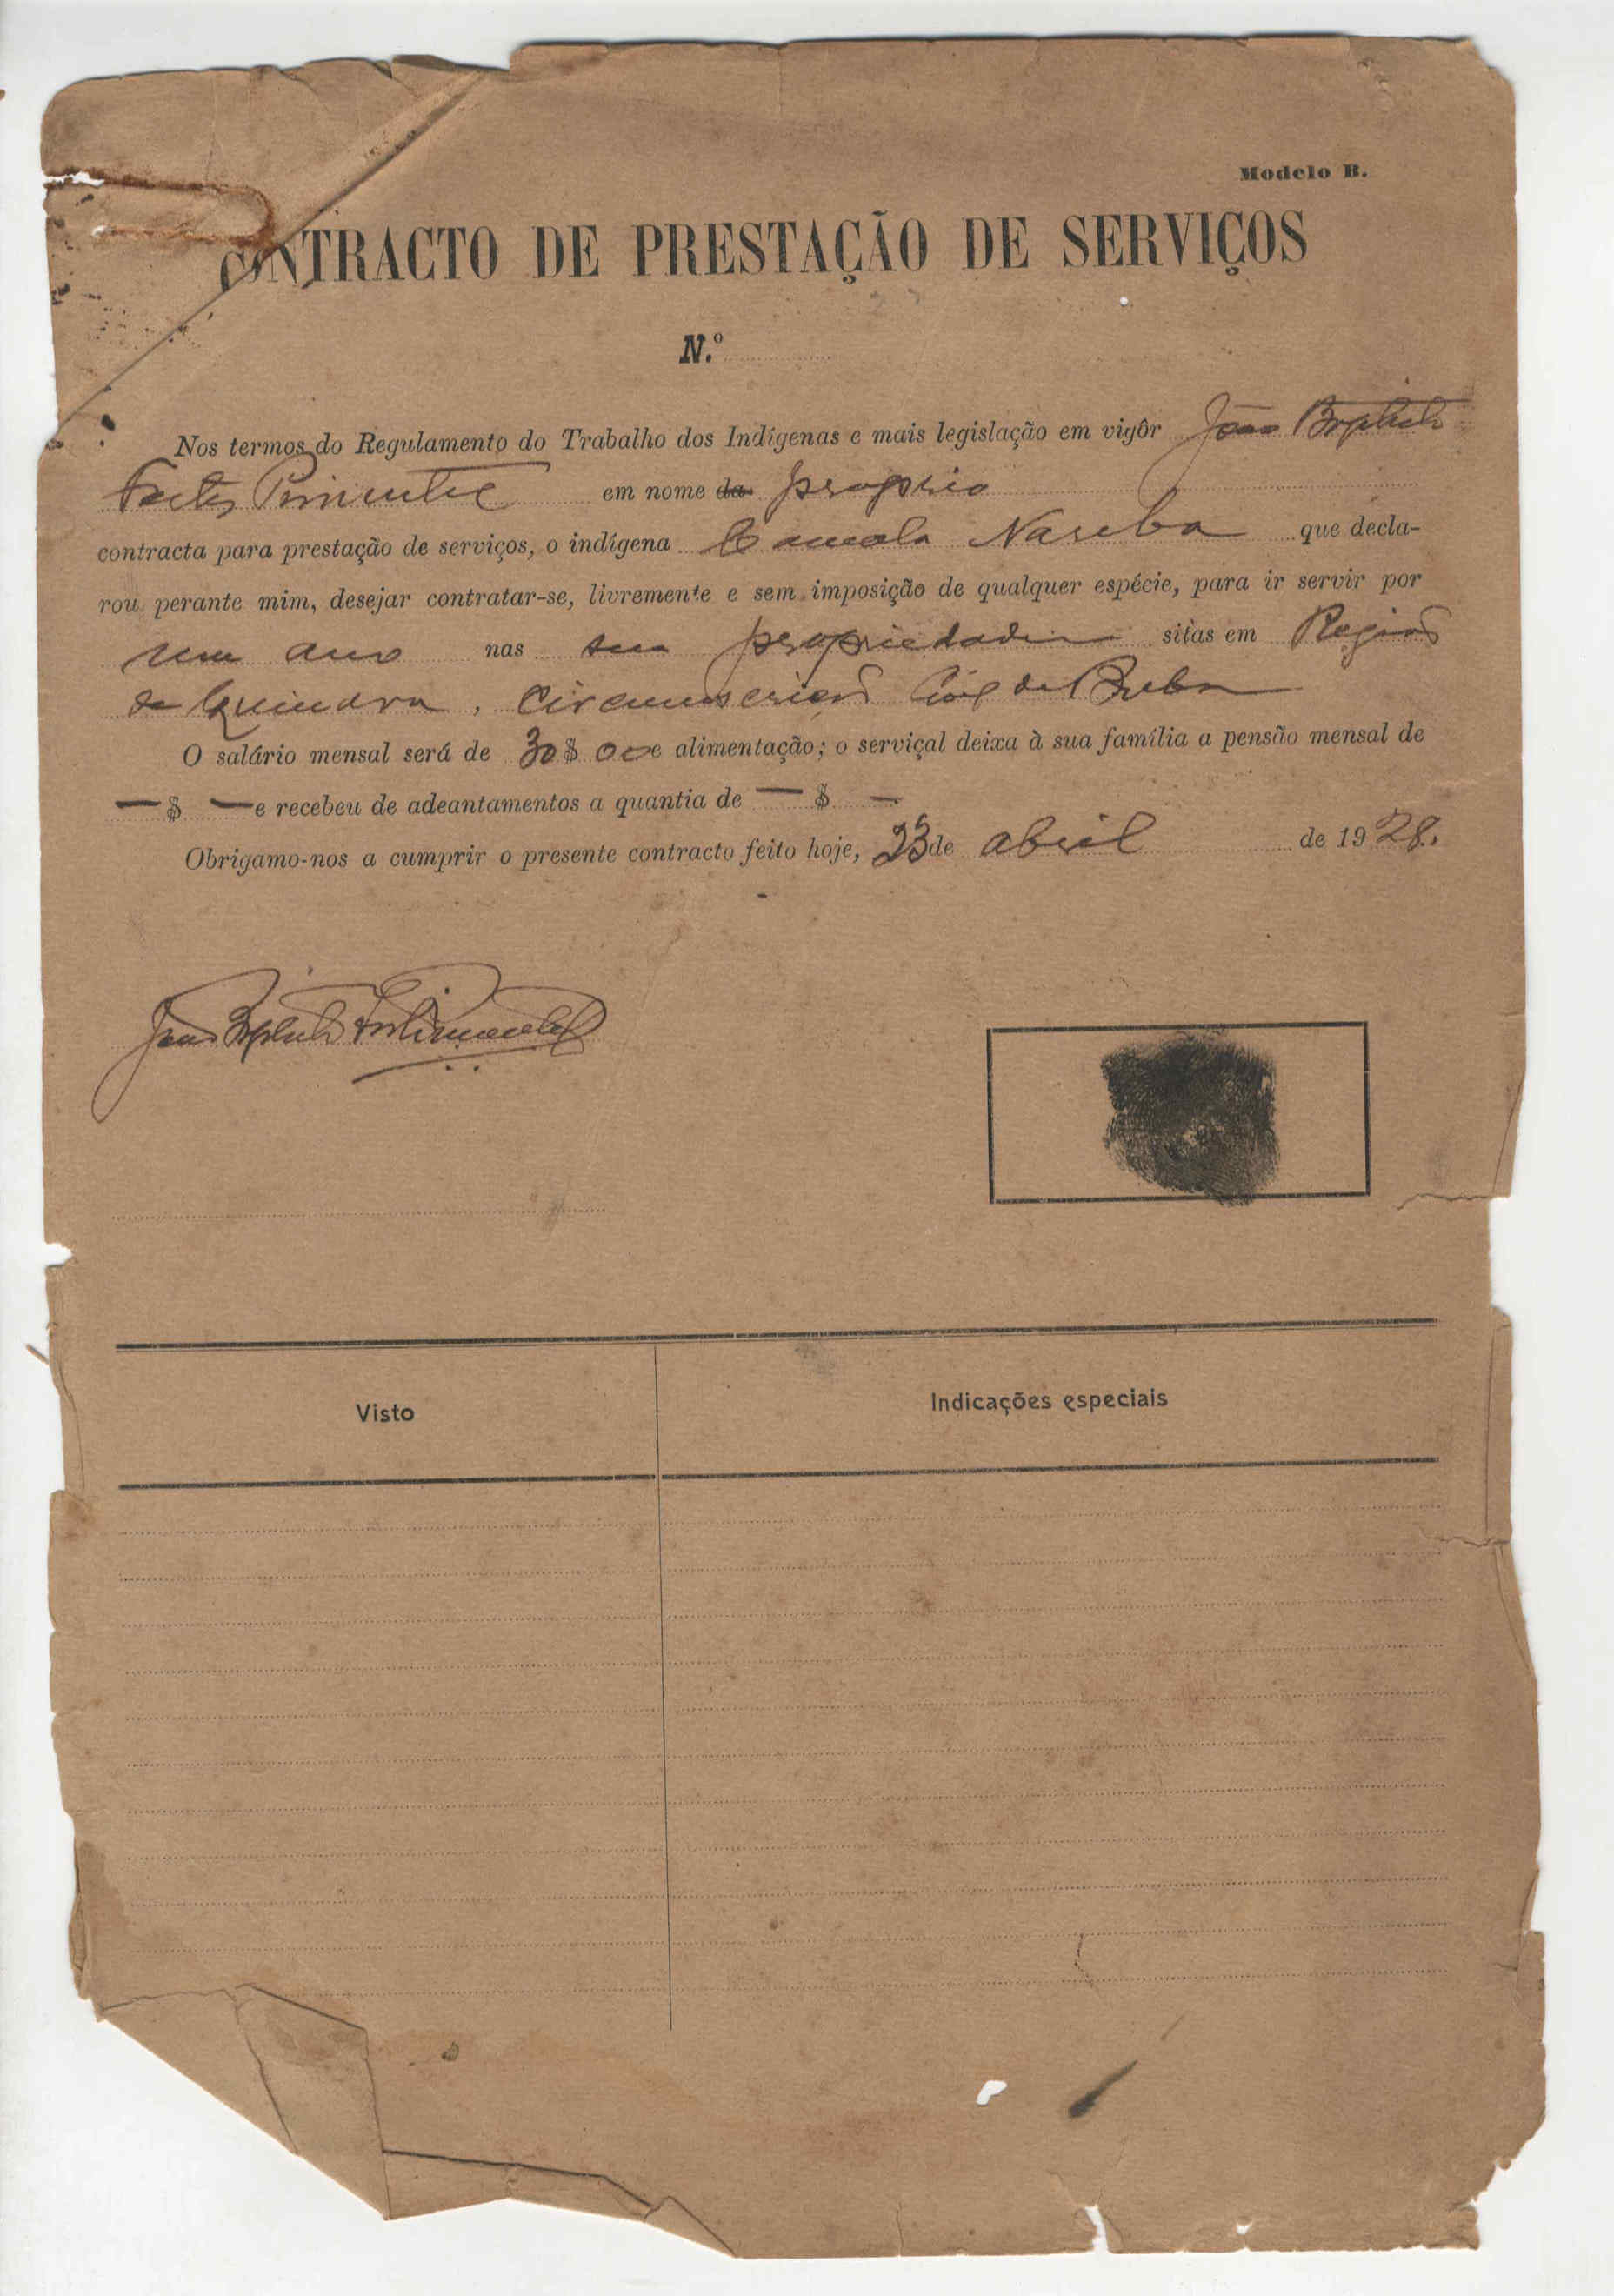 Modelo B.
CONTRACTO DE PRESTAÇÃO DE SERVIÇOS
N.º
Nos termos do Regulamento do Trabalho dos Indígenas e mais legislação em vigôr João Baptista
Fortes Pimentel em nome da proprio
contracta para prestação de serviços, o indígena Camala Nareba que decla-
rou perante mim, desejar contratar-se, livremente e sem imposição de qualquer espécie, para ir servir por
um ano nas sua propriedade sitas em Região
de Quinara, Circunscrição Civil de Buba
O salário mensal será de 30 $ 00 e alimentação; o serviçal deixa à sua família a pensão mensal de
— $ — e recebeu de adeantamentos a quantia de — $ —
Obrigamo-nos a cumprir o presente contracto feito hoje, 23 de abril de 1928.
João Baptista Fortes Pimentel
Visto
Indicações especiais